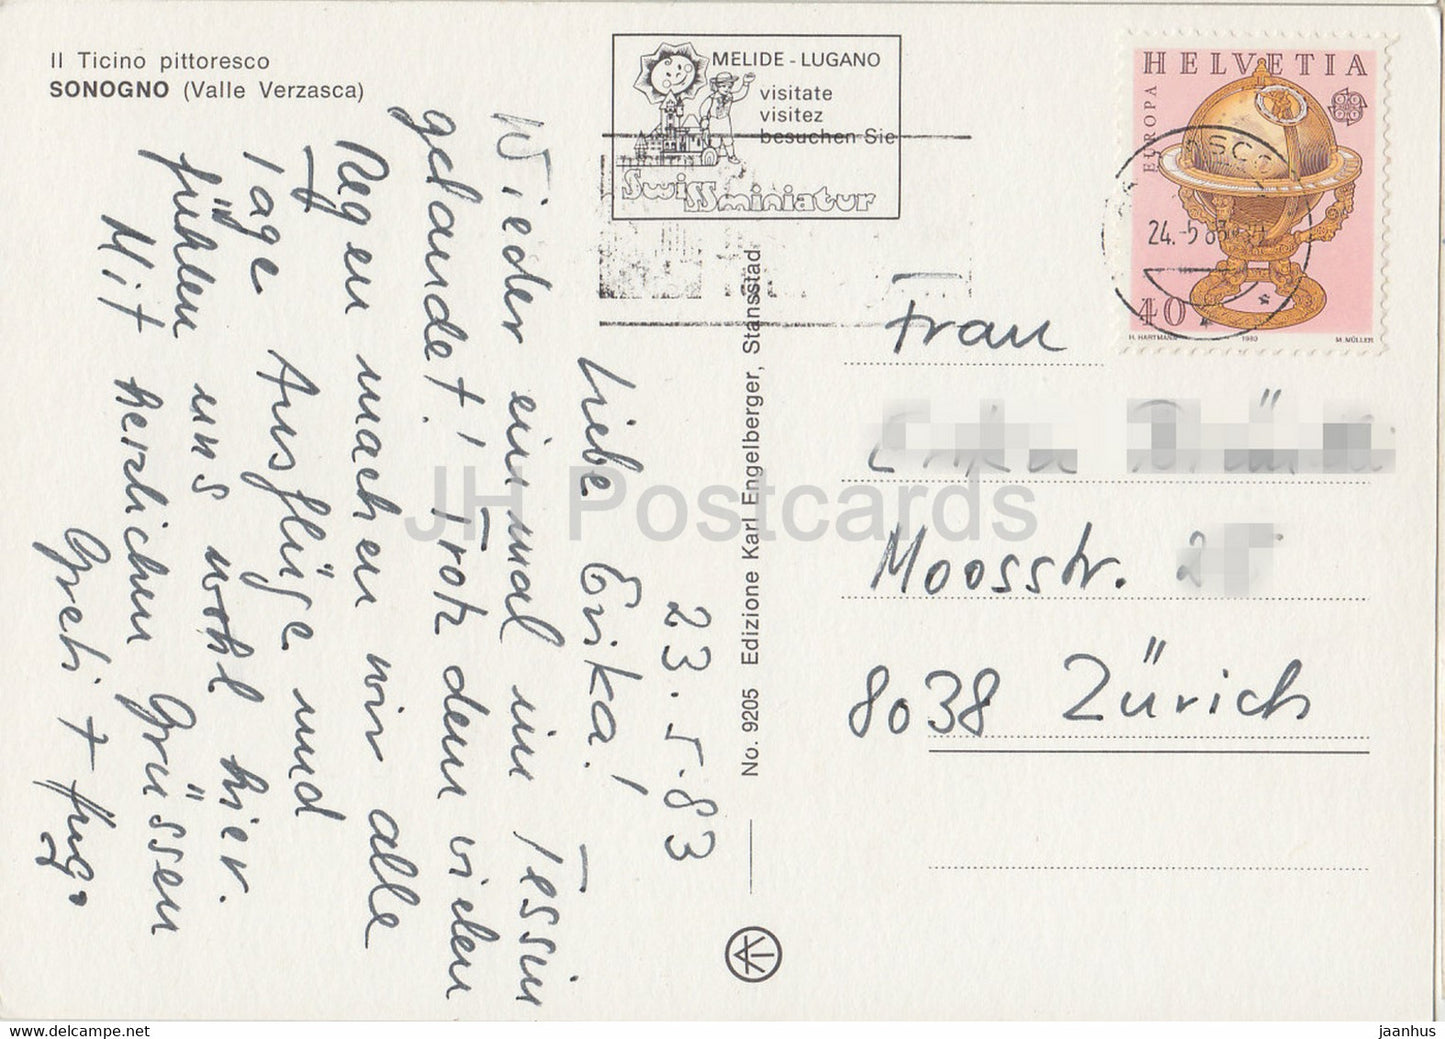 Il Ticino pittoresco
SONOGNO (Valle Verzasca)
23.5.83
Liebe Erika!
Wieder einmal im Tessin
gelandet! Trotz dem vielen
Regen machen wir alle
Tage Ausflüge und
fühlen uns wohl hier.
Mit herzlichen Grüssen
Greti + Hug.
No. 9205 Edizione Karl Engelberger, Stansstad
MELIDE - LUGANO
visitate
visitez
besuchen Sie
Swissminiatur
HELVETIA
EUROPA
24.-5 83
40
H. HARTMANN 1983 M. MÜLLER
Frau
Moosstr.
8038 Zürich
JH Postcards
jh-postcard.com
jaanhus